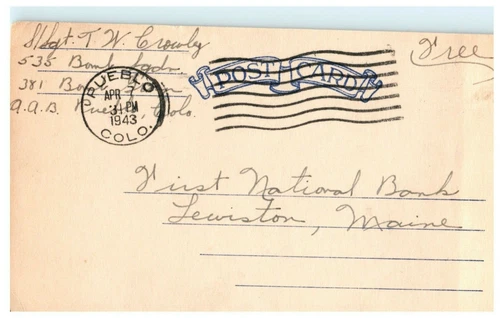 S/Sgt. T. W. Crowley
Free
535 Bomb Sqdn.
381 Bo
A.A.B. Pueblo, Colo.
PUEBLO
APR 7
PM
1943
COLO.
POST CARD
First National Bank
Lewiston, Maine